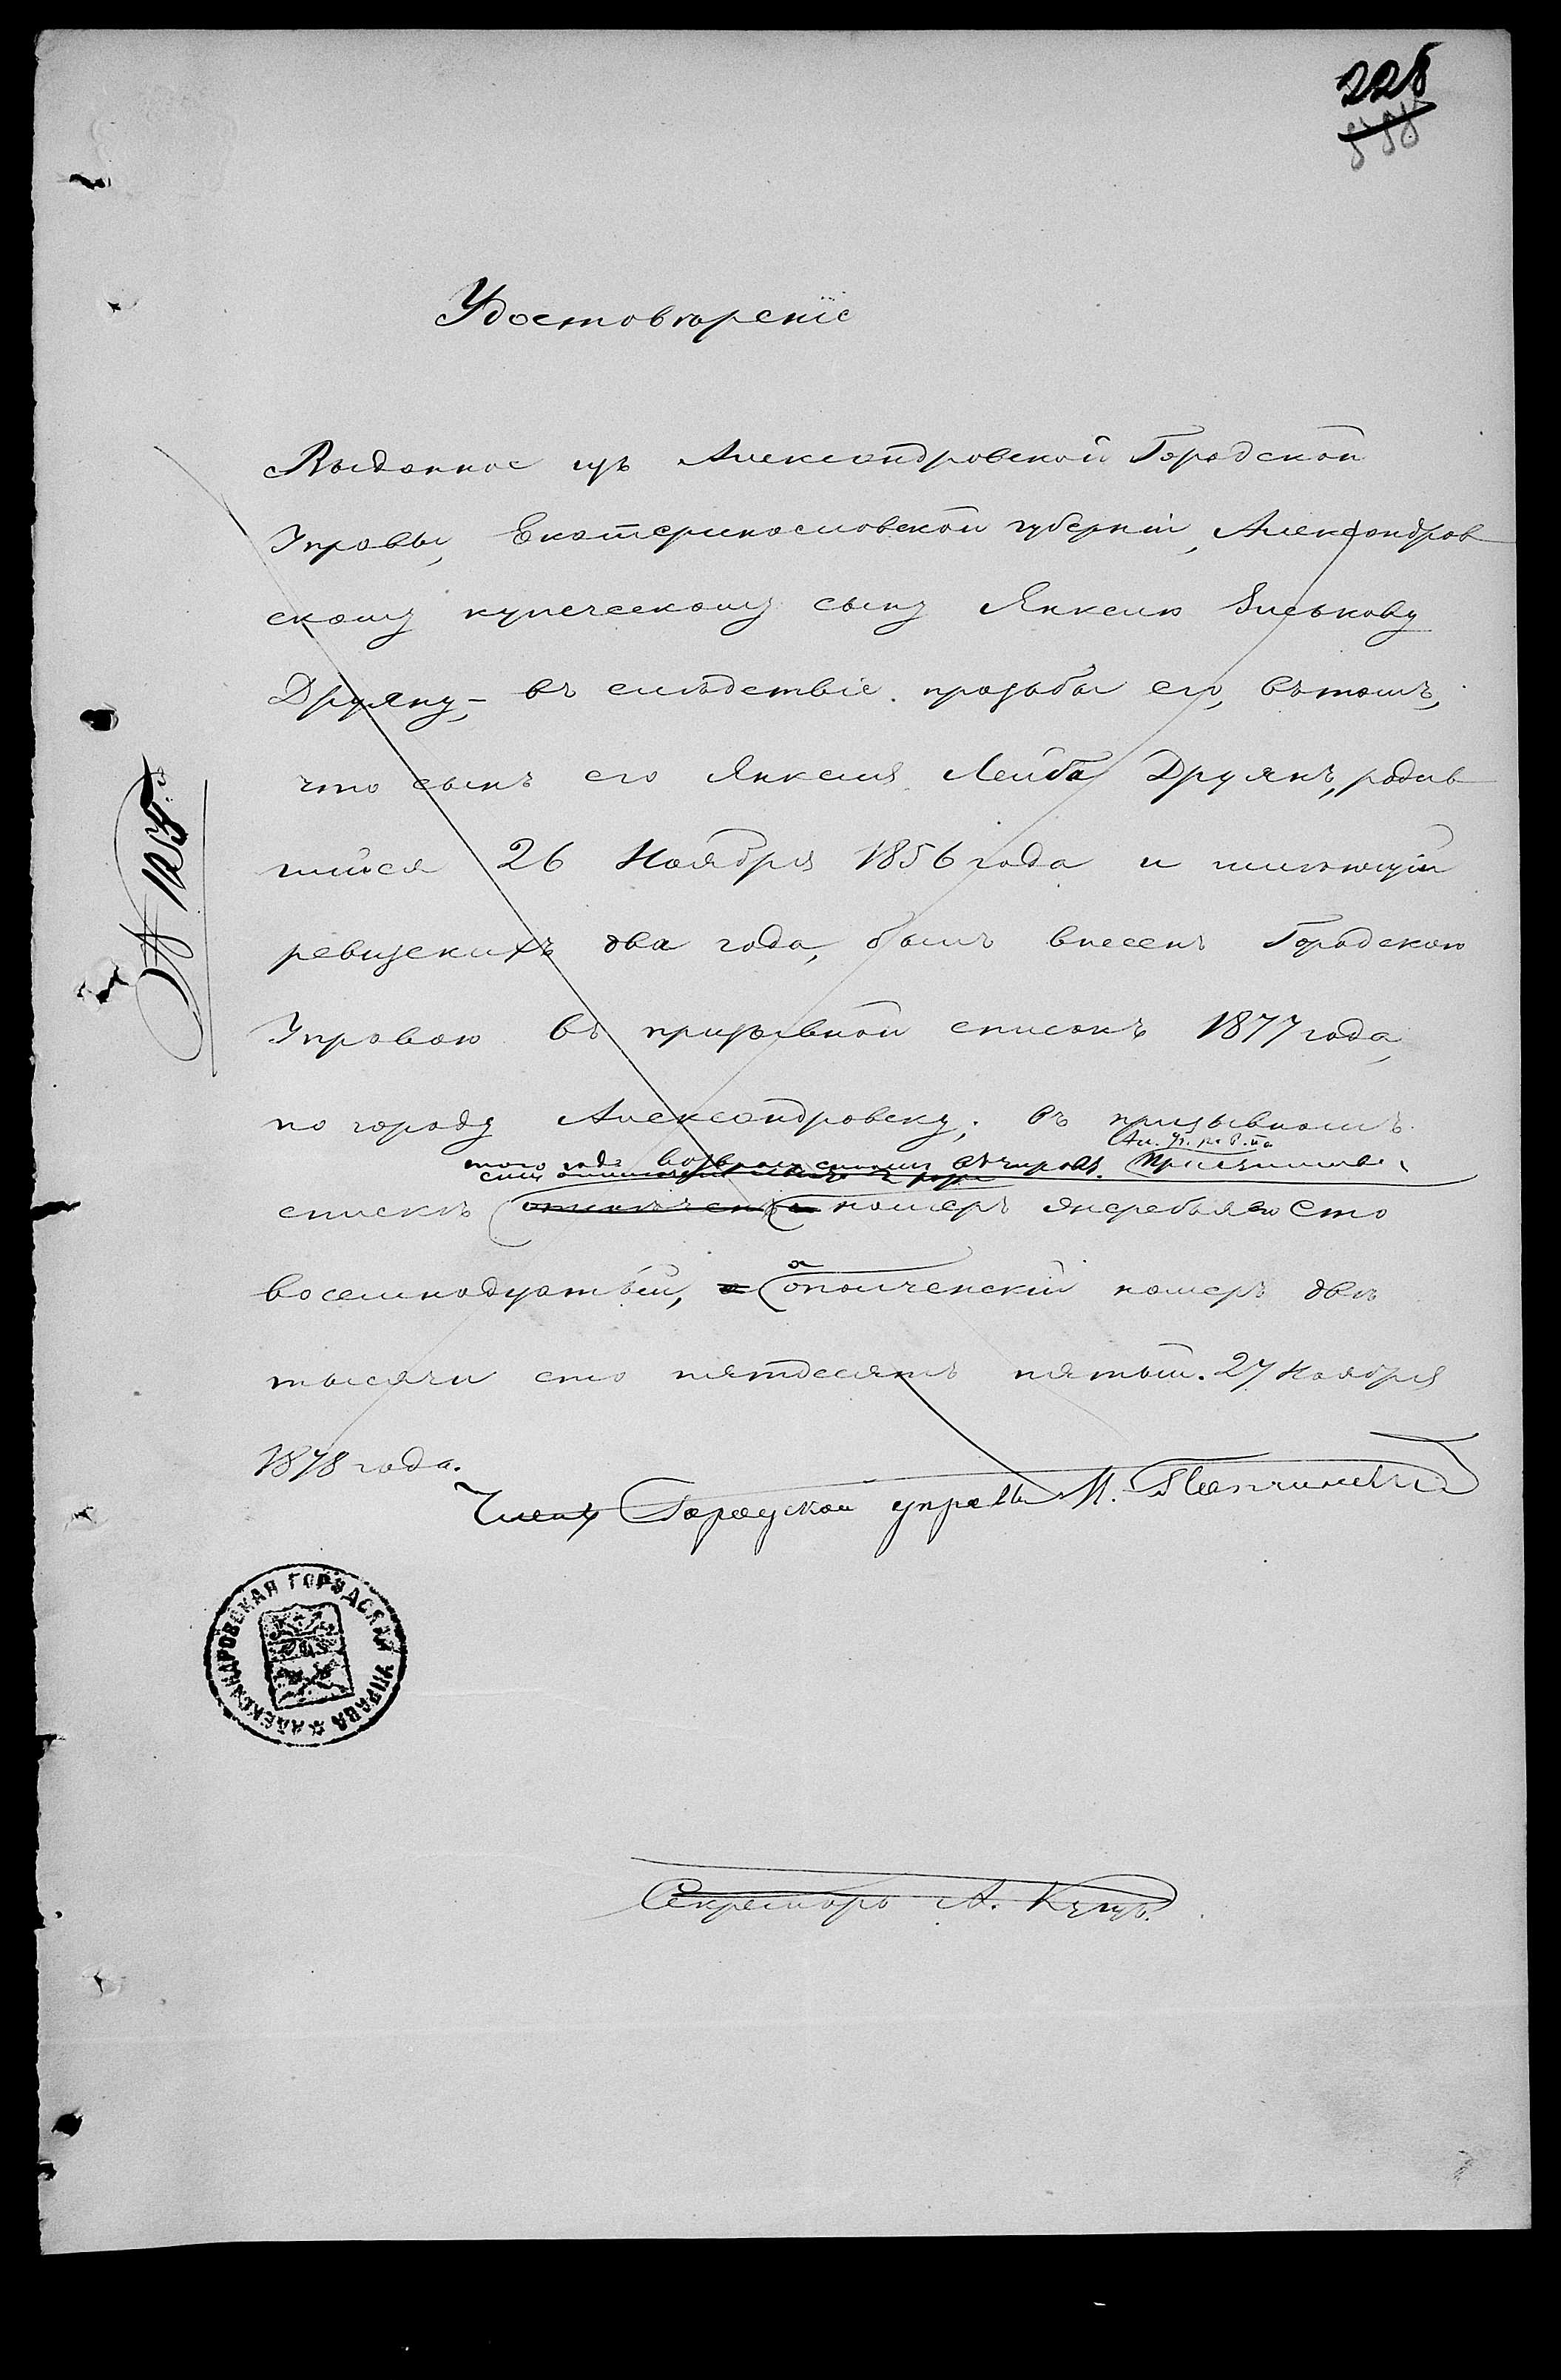 228
Удостовѣреніе
Выданное изъ Александровской Городской
Управы, Екатеринославской губерніи, Александров
скому купеческому сыну Янкелю Зиськову
Друяну,- въ слѣдствіе прозьбы его, въ томъ,
что сынъ его Янкель Лейба Друянъ, родив
шийся 26 Ноября 1856 года и имѣющій
ревизскихъ два года, былъ внесенъ Городскою
Управою въ призывной списокъ 1877 года,
по городу Александровску; въ призывномъ
того года
спискѣ номеръ жеребья его Сто
восемнадцатый, а ополченскій номеръ двѣ
тысячи сто пятдесятъ пятый. 27 Ноября
1878 года.
Членъ Городской управы М.
АЛЕКСАНДРОВСКАЯ ГОРОДСКАЯ УПРАВА
Секретарь А.